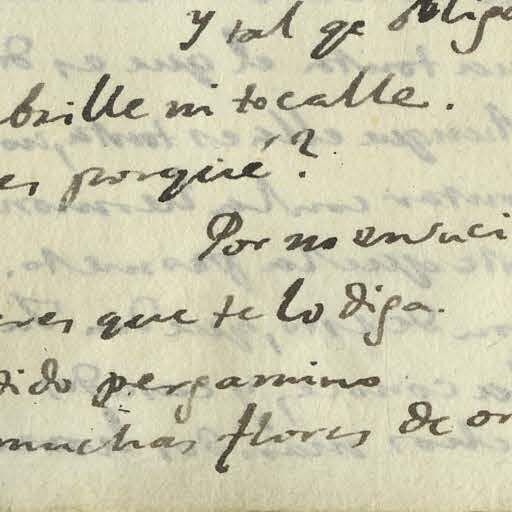 y tal qe
brille ni tocalle.
es porqué?
Por no ensuci
eres que te lo diga.
dido pergamino
muchas flores de or